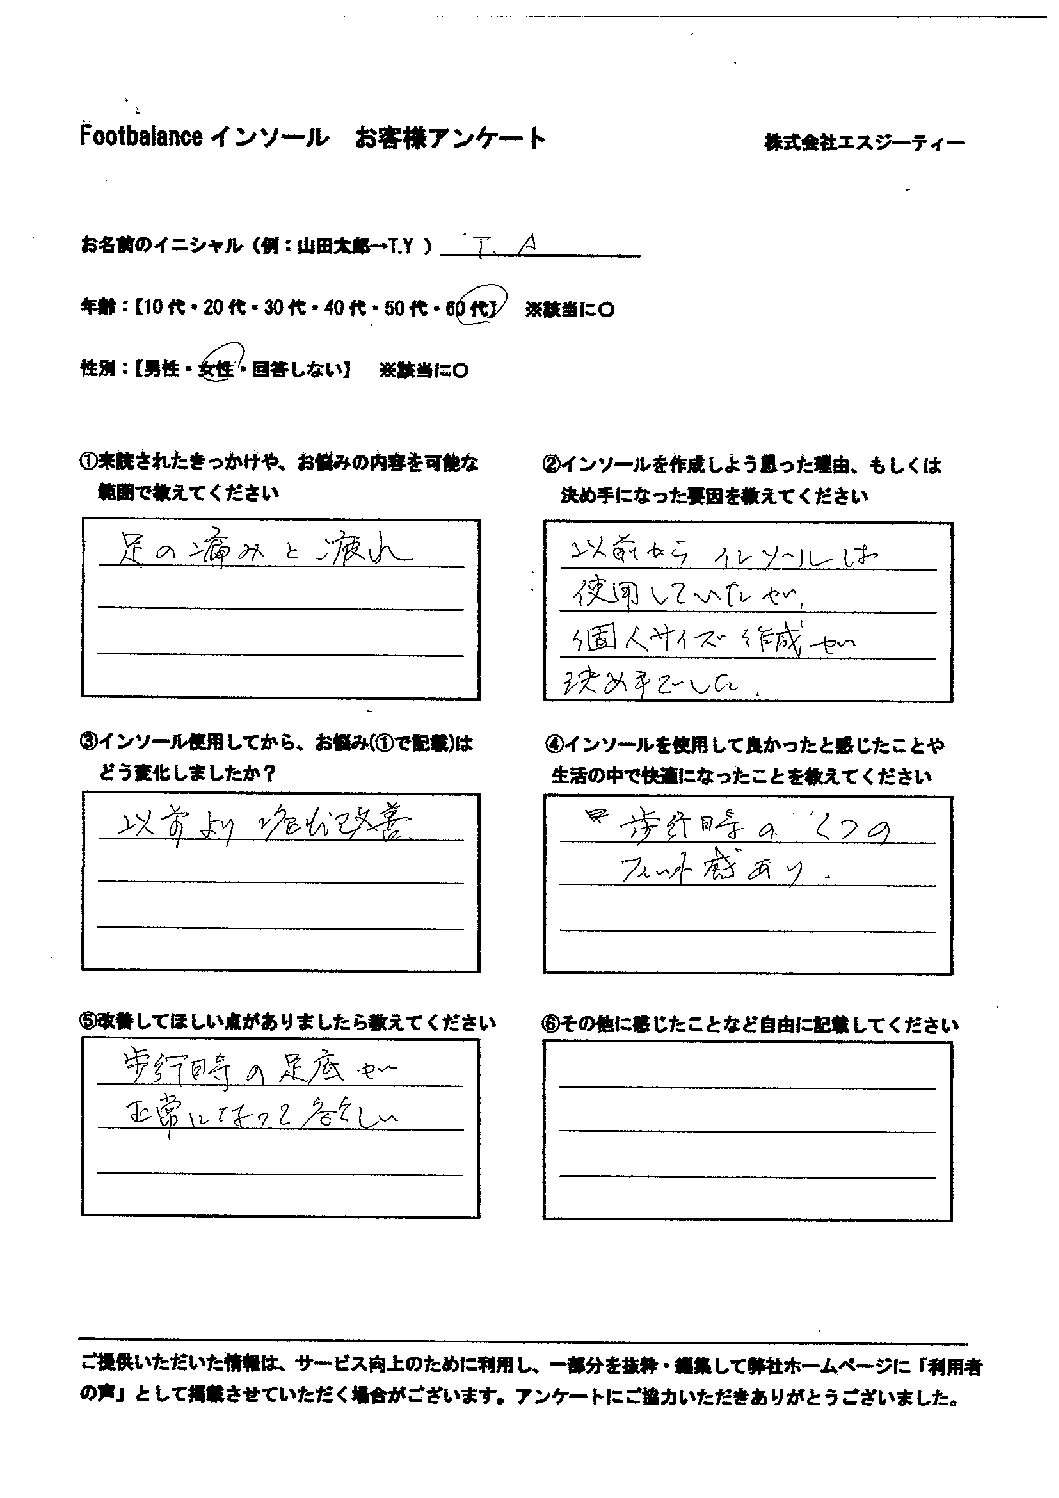 Footbalance インソール　お客様アンケート
株式会社エスジーティー
お名前のイニシャル（例：山田太郎→T.Y ） T. A
年齢：【10 代・20 代・30 代・40 代・50 代・60 代】　※該当に〇
性別：【男性・女性・回答しない】　※該当に〇
①来院されたきっかけや、お悩みの内容を可能な
範囲で教えてください
足の痛みと疲れ
②インソールを作成しよう思った理由、もしくは
決め手になった要因を教えてください
以前から インソールは
使用していたが、
個人サイズ作成が
決め手でした.
③インソール使用してから、お悩み(①で記載)は
どう変化しましたか？
以前より 改善
④インソールを使用して良かったと感じたことや
生活の中で快適になったことを教えてください
歩行時の くつの
フィット感あり.
⑤改善してほしい点がありましたら教えてください
歩行時の足底が
正常になって欲しい
⑥その他に感じたことなど自由に記載してください
ご提供いただいた情報は、サービス向上のために利用し、一部分を抜粋・編集して弊社ホームページに「利用者
の声」として掲載させていただく場合がございます。アンケートにご協力いただきありがとうございました。